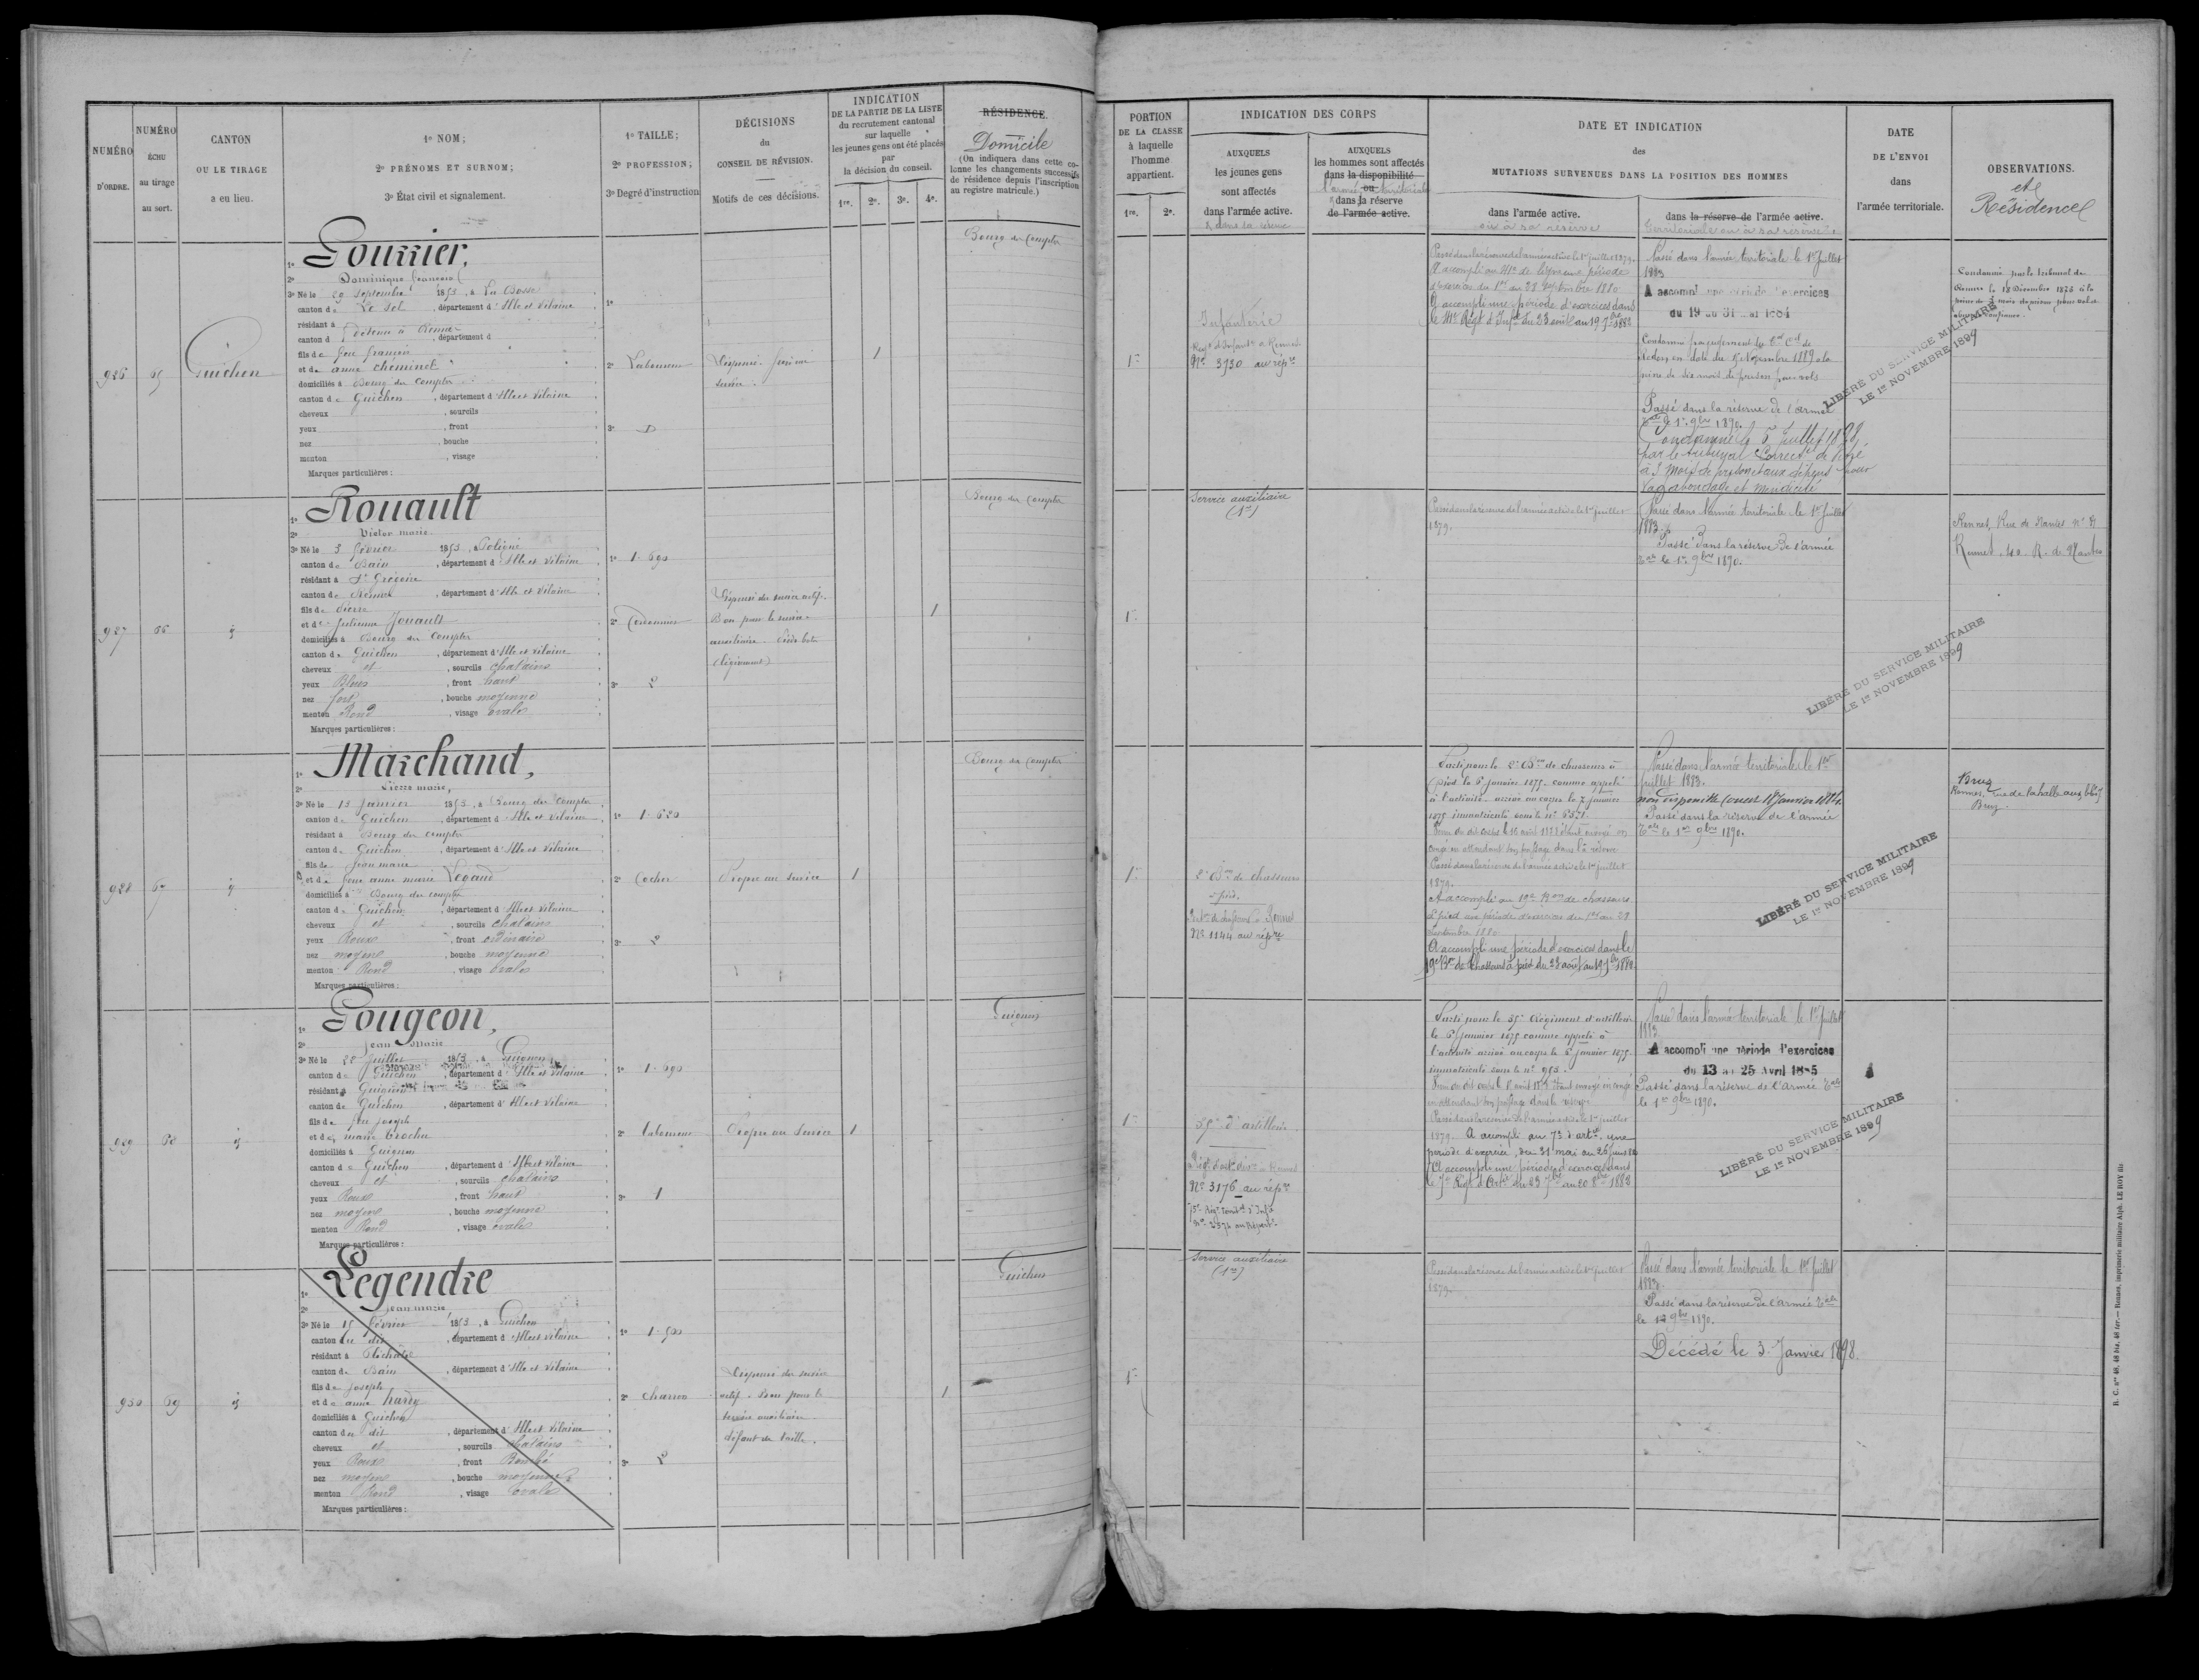 NUMÉRO
D'ORDRE.
NUMÉRO
ÉCHU
au tirage
au sort.
CANTON
OU LE TIRAGE
a eu lieu.
1º NOM;
2º PRÉNOMS ET SURNOM;
3º État civil et signalement.
1º TAILLE;
2º PROFESSION;
3º Degré d'instruction
DÉCISIONS
du
CONSEIL DE RÉVISION.
Motifs de ces décisions.
INDICATION
DE LA PARTIE DE LA LISTE
du recrutement cantonal
sur laquelle
les jeunes gens ont été placés
par
la décision du conseil.
1re. 2e. 3e. 4e.
RÉSIDENCE.
Domicile
(On indiquera dans cette co-
lonne les changements successifs
de résidence depuis l'inscription
au registre matricule.)
PORTION
DE LA CLASSE
à laquelle
l'homme
appartient.
1re. 2e.
INDICATION DES CORPS
AUXQUELS
les jeunes gens
sont affectés
dans l'armée active.
& dans la réserve
AUXQUELS
les hommes sont affectés
dans la disponibilité
ou
l'armée territoriale
dans la réserve
de l'armée active.
DATE ET INDICATION
des
MUTATIONS SURVENUES DANS LA POSITION DES HOMMES
dans l'armée active.
ou à sa réserve
dans la réserve de l'armée active.
territoriale ou à sa réserve
DATE
DE L'ENVOI
dans
l'armée territoriale.
OBSERVATIONS.
et
Résidence
926
65
Guichen
1º Gourrier,
2º Dominique François
3º Né le 29 Septembre 1853, à La Bosse
canton de Le Sel, département d'Ille et Vilaine
résidant à détenu à Rennes
canton d , département d
fils de feu françois
et de anne cheminel
domiciliés à Bourg des Comptes
canton de Guichen, département d'Ille et Vilaine
cheveux , sourcils
yeux , front
nez , bouche
menton , visage
Marques particulières :
1º
2º Laboureur
3º D
1
Bourg des Comptes
1re
Infanterie
Nº 3730 au rép.re
Passé dans la réserve de l'armée active le 1er juillet 1879.
A accompli une période d'exercices dans
Passé dans l'armée territoriale le 1er Juillet
1883
A accompli une période d'exercices
du 19 au 31
peine de six mois de prison pour vols
Passé dans la réserve de l'armée
Tale le 1er 9bre 1890.
Condamné le 5 Juillet 1898
par le tribunal Correct. de Vitré
à 3 mois de prison et aux dépens pour
vagabondage et mendicité
LIBÉRÉ DU SERVICE MILITAIRE
LE 1er NOVEMBRE 1899
Condamné par le tribunal de
Rennes le 18 Décembre 1873 à la
peine de 3 mois de prison pour vol et
abus de confiance.
927
66
1º Rouault
2º Victor marie
3º Né le 3 février 1853, à Poligné
canton de Bain, département d'Ille et Vilaine
résidant à St Grégoire
canton de Rennes, département d'Ille et Vilaine
fils de Pierre
et de Julienne Jouault
domiciliés à Bourg des Comptes
canton de Guichen, département d'Ille et Vilaine
cheveux et, sourcils chatains
yeux Bleus, front haut
nez fort, bouche moyenne
menton Rond, visage ovale
Marques particulières :
1º 1.690
2º Cordonnier
3º 2
Dispensé du service actif.
Bon pour le service
auxiliaire. Pied bot
(légèrement)
1
Bourg des Comptes
1re
Service auxiliaire
(1re)
Passé dans la réserve de l'armée active le 1er juillet
1879.
Passé dans l'armée territoriale le 1er Juillet
1883.
Passé dans la réserve de l'armée
Tale le 1er 9bre 1890.
LIBÉRÉ DU SERVICE MILITAIRE
LE 1er NOVEMBRE 1899
Rennes, Rue de Nantes
Rennes 40 R. de Nantes
928
67
1º Marchand,
2º Pierre marie,
3º Né le 13 Janvier 1853, à Bourg des Comptes
canton de Guichen, département d'Ille et Vilaine
résidant à Bourg des Comptes
canton de Guichen, département d'Ille et Vilaine
fils de Jean marie
et de feue anne marie Legaud
domiciliés à Bourg des comptes
canton de Guichen, département d'Ille et Vilaine
cheveux et, sourcils chatains
yeux Roux, front ordinaire
nez moyen, bouche moyenne
menton Rond, visage ovale
Marques particulières :
1º 1.620
2º Cocher
3º 2
Propre au service
1
Bourg des Comptes
1re
2e Bon de chasseurs
à pied.
Nº 1144 au rép.re
Parti pour le 2e Bon de chasseurs à
pied le 6 Janvier 1875 comme appelé
à l'activité, arrivé au corps le 7 janvier
1875 immatriculé sous le nº 6371.
Passé dans la réserve de l'armée active le 1er juillet
1879.
A accompli au 19e Bon de chasseurs
à pied une période d'exercices du 1er au 28
Septembre 1880
A accompli une période d'exercices dans le
19e Bon de Chasseurs à pied du 23 août au 19 7bre 1882
Passé dans l'armée territoriale le 1er
Juillet 1883.
non disponible
Passé dans la réserve de l'armée
Tale le 1er 9bre 1890.
LIBÉRÉ DU SERVICE MILITAIRE
LE 1er NOVEMBRE 1899
Bruz
Rennes, rue de la halle aux blés
Bruz.
929
68
1º Gougeon,
2º Jean Marie
3º Né le 28 Juillet 1853, à Guignen
canton de Guichen, département d'Ille et Vilaine
résidant à Guignen
canton de Guichen, département d'Ille et Vilaine
fils de feu Joseph
et de marie Trochu
domiciliés à Guignen
canton de Guichen, département d'Ille et Vilaine
cheveux et, sourcils chatains
yeux Roux, front haut
nez moyen, bouche moyenne
menton Rond, visage ovale
Marques particulières :
1º 1.690
2º Laboureur
3º 1
Propre au Service
1
Guignen
1re
35e d'artillerie
Nº 3176 au rép.re
Parti pour le 35e Régiment d'artillerie
le 6 Janvier 1875 comme appelé à
l'activité arrivé au corps le 6 janvier 1875.
Passé dans la réserve de l'armée active le 1er juillet
1879. A accompli au 7e d'artie une
période d'exercice, du 31 mai au 26 juin
A accompli une période d'exercices dans
Passé dans l'armée territoriale le 1er Juillet
1883
A accompli une période d'exercices
du 13 au 25 Avril 1885
Passé dans la réserve de l'armée Tale
le 1er 9bre 1890.
LIBÉRÉ DU SERVICE MILITAIRE
LE 1er NOVEMBRE 1899
930
69
1º Legendre
2º Jean marie
3º Né le 15 février 1853, à Guichen
canton du dit, département d'Ille et Vilaine
résidant à Pléchatel
canton de Bain, département d'Ille et Vilaine
fils de Joseph
et de anne hardy
domiciliés à Guichen
canton du dit, département d'Ille et Vilaine
cheveux et, sourcils chatains
yeux Roux, front Bombé
nez moyen, bouche moyenne
menton Rond, visage ovale
Marques particulières :
1º 1.500
2º charron
3º 2
Dispensé du service
actif. Bon pour le
service auxiliaire
défaut de taille.
1
Guichen
1re
Service auxiliaire
(1re)
Passé dans la réserve de l'armée active le 1er juillet
1879.
Passé dans l'armée territoriale le 1er Juillet
1883.
Passé dans la réserve de l'armée Tale
le 1er 9bre 1890.
Décédé le 3 Janvier 1898.
R. C. nos 48, 48 bis, 48 ter. — Rennes, imprimerie militaire Alph. LE ROY fils